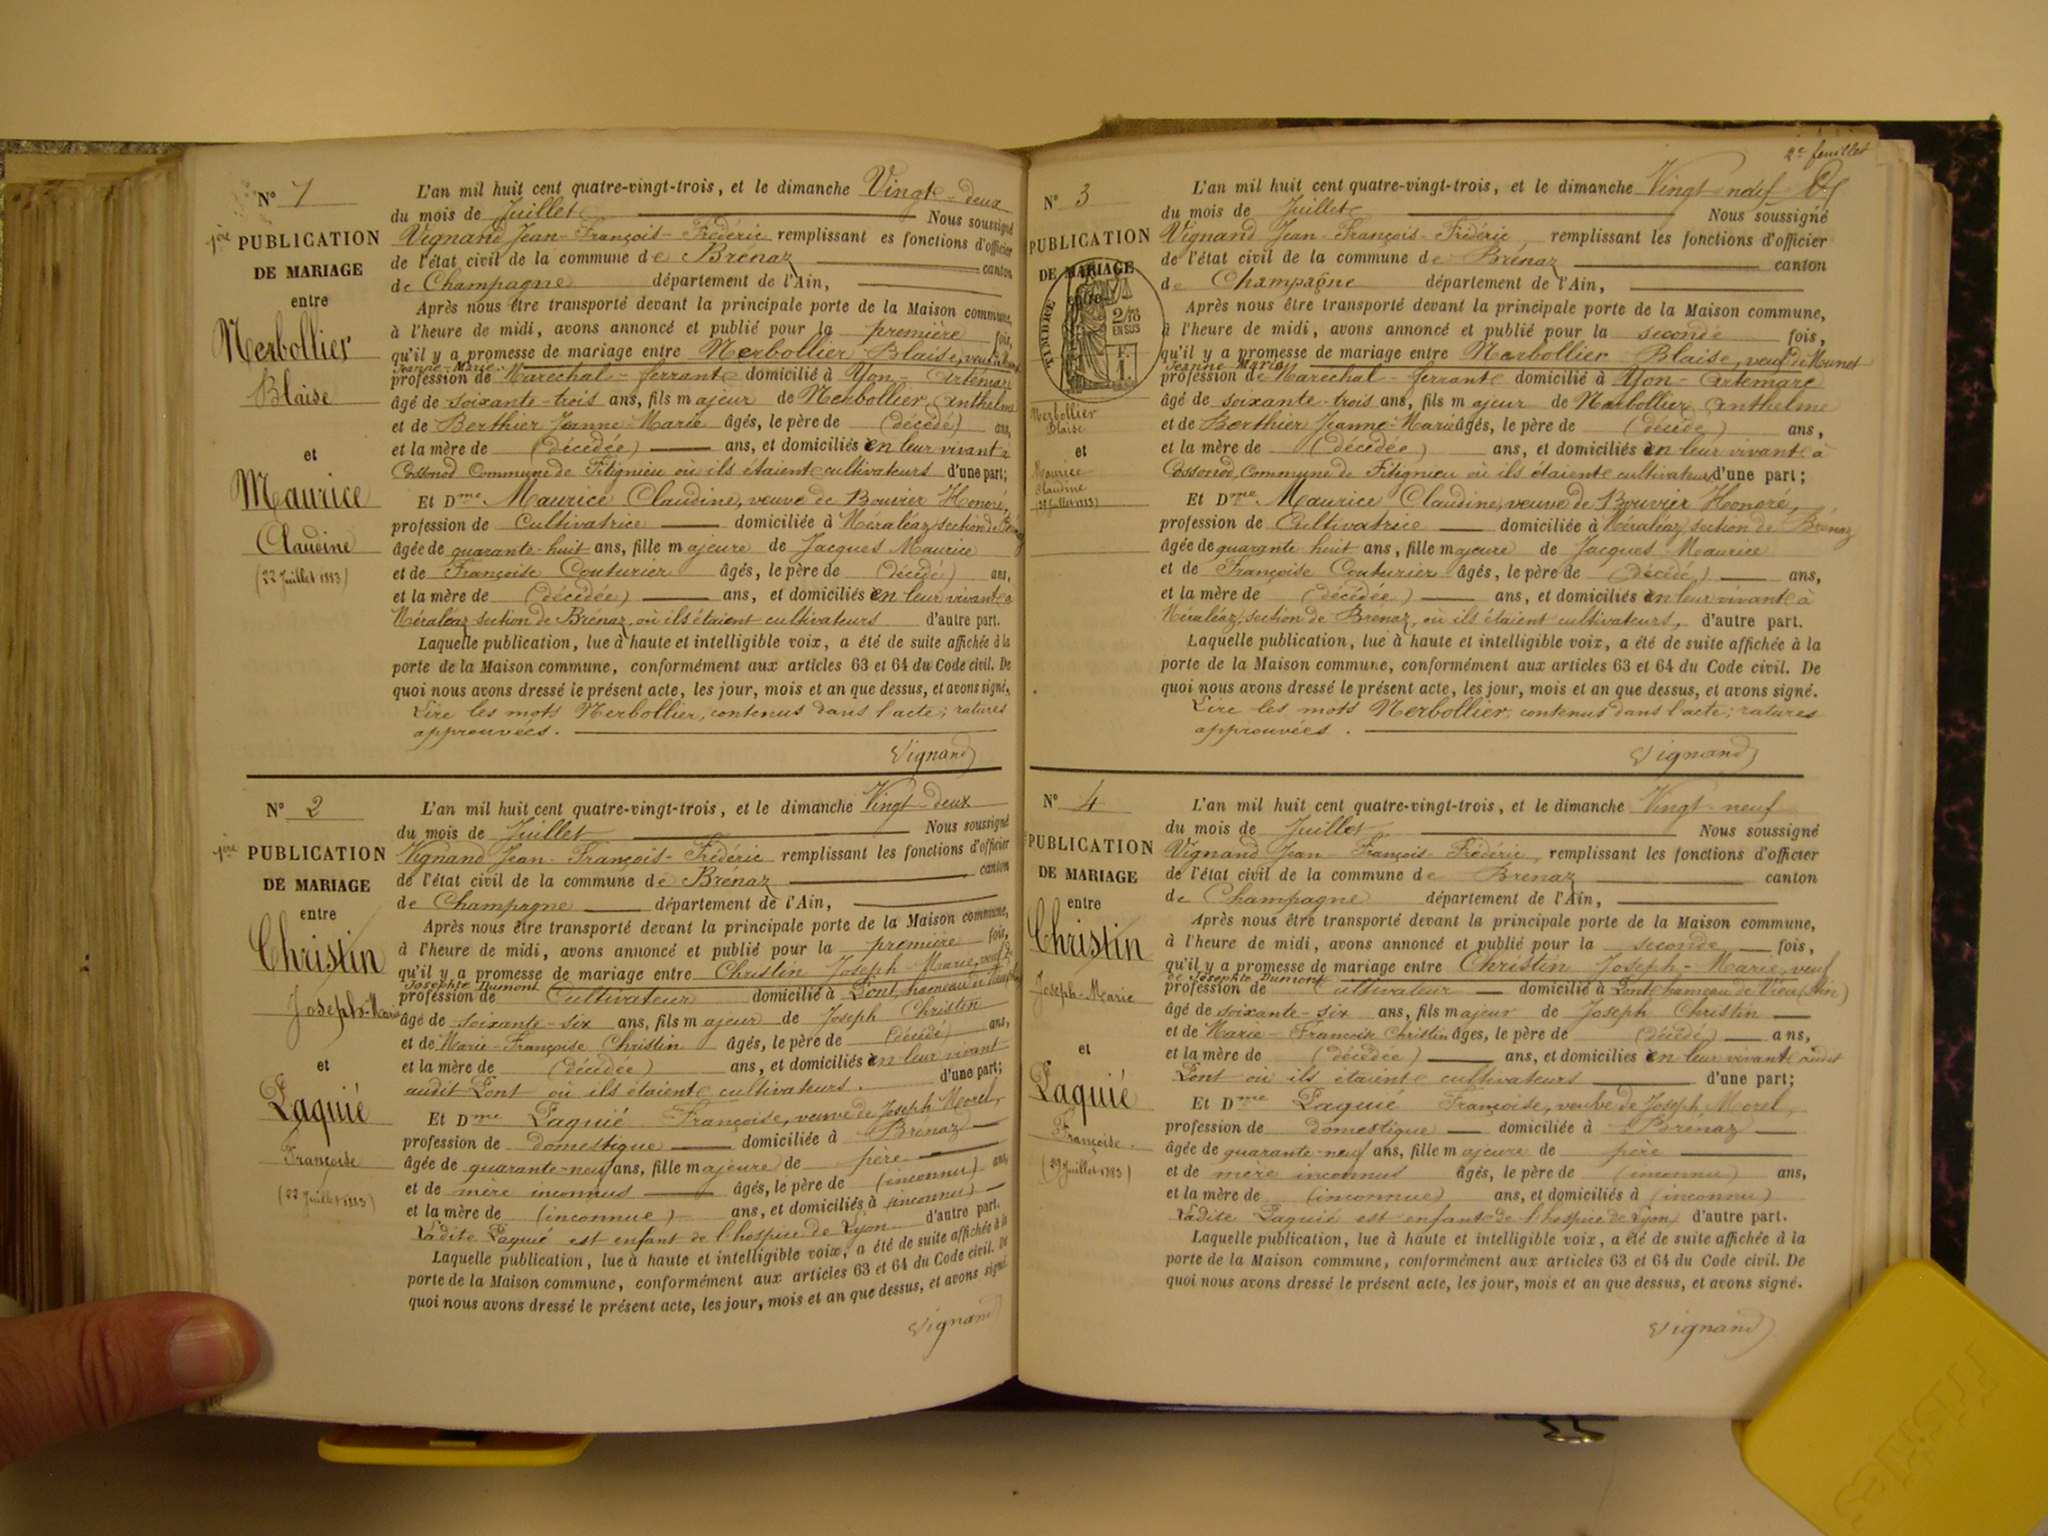 N° 1
1ère PUBLICATION
DE MARIAGE
entre
Nerbollier
Blaise
et
Maurice
Claudine
(22 Juillet 1883)
L'an mil huit cent quatre-vingt-trois, et le dimanche Vingt-deux
du mois de Juillet Nous soussigné
Vignand Jean-François-Frédéric remplissant es fonctions d'officier
de l'état civil de la commune de Brénaz canton
de Champagne département de l'Ain,
Après nous être transporté devant la principale porte de la Maison commune,
à l'heure de midi, avons annoncé et publié pour la première fois,
qu'il y a promesse de mariage entre Nerbollier Blaise, veuf de
Jeanne-Marie
profession de Maréchal-ferrant domicilié à Yon-Artemare
âgé de soixante-trois ans, fils majeur de Nerbollier Anthelme
et de Berthier Jeanne-Marie âgés, le père de (décédé) ans,
et la mère de (décédée) ans, et domiciliés en leur vivant à
Cossonod Commune de Fitignieu où ils étaient cultivateurs d'une part;
Et Dme Maurice Claudine, veuve de Bouvier Honoré,
profession de Cultivatrice domiciliée à Méraléaz section de
âgée de quarante-huit ans, fille majeure de Jacques Maurice
et de Françoise Couturier âgés, le père de (décédé) ans,
et la mère de (décédée) ans, et domiciliés en leur vivant à
Méraléaz section de Brénaz, où ils étaient cultivateurs d'autre part.
Laquelle publication, lue à haute et intelligible voix, a été de suite affichée à la
porte de la Maison commune, conformément aux articles 63 et 64 du Code civil. De
quoi nous avons dressé le présent acte, les jour, mois et an que dessus, et avons signé.
Lire les mots Nerbollier, contenus dans l'acte; ratures
approuvées.
Vignand
N° 2
1ère PUBLICATION
DE MARIAGE
entre
Christin
Joseph-Marie
et
Paquié
Françoise
(22 Juillet 1883)
L'an mil huit cent quatre-vingt-trois, et le dimanche Vingt-deux
du mois de Juillet Nous soussigné
Vignand Jean-François-Frédéric remplissant les fonctions d'officier
de l'état civil de la commune de Brénaz canton
de Champagne département de l'Ain,
Après nous être transporté devant la principale porte de la Maison commune,
à l'heure de midi, avons annoncé et publié pour la première fois,
qu'il y a promesse de mariage entre Christin Joseph-Marie, veuf de
Josephte Dumont
profession de Cultivateur domicilié à Pont, hameau de
âgé de soixante-six ans, fils majeur de Joseph Christin
et de Marie-Françoise Christin âgés, le père de (décédé) ans,
et la mère de (décédée) ans, et domiciliés en leur vivant
audit Pont où ils étaient cultivateurs. d'une part;
Et Dme Paquié Françoise, veuve de Joseph Morel,
profession de domestique domiciliée à Brénaz
âgée de quarante-neuf ans, fille majeure de père
et de mère inconnus âgés, le père de (inconnu) ans,
et la mère de (inconnue) ans, et domiciliés à (inconnu)
Ladite Paquié est enfant de l'hospice de Lyon d'autre part.
Laquelle publication, lue à haute et intelligible voix, a été de suite affichée à la
porte de la Maison commune, conformément aux articles 63 et 64 du Code civil. De
quoi nous avons dressé le présent acte, les jour, mois et an que dessus, et avons signé
Vignand
2e feuillet
N° 3
PUBLICATION
DE MARIAGE
entre
TIMBRE
2/10
EN SUS
F.
1.
Nerbollier
Blaise
et
Maurice
Claudine
(29 Juillet 1883)
L'an mil huit cent quatre-vingt-trois, et le dimanche Vingt-neuf
du mois de Juillet Nous soussigné
Vignand Jean-François-Frédéric remplissant les fonctions d'officier
de l'état civil de la commune de Brénaz canton
de Champagne département de l'Ain,
Après nous être transporté devant la principale porte de la Maison commune,
à l'heure de midi, avons annoncé et publié pour la seconde fois,
qu'il y a promesse de mariage entre Nerbollier Blaise, veuf de Munet
Jeanne Marie
profession de Maréchal-ferrant domicilié à Yon-Artemare
âgé de soixante-trois ans, fils majeur de Nerbollier Anthelme
et de Berthier Jeanne-Marie âgés, le père de (décédé) ans,
et la mère de (décédée) ans, et domiciliés en leur vivant à
Cossonod, Commune de Fitignieu où ils étaient cultivateurs d'une part;
Et Dme Maurice Claudine, veuve de Bouvier Honoré,
profession de Cultivatrice domiciliée à Méraléaz, section de Brénaz
âgée de quarante huit ans, fille majeure de Jacques Maurice
et de Françoise Couturier âgés, le père de (décédé) ans,
et la mère de (décédée) ans, et domiciliés en leur vivant à
Méraléaz, section de Brénaz, où ils étaient cultivateurs, d'autre part.
Laquelle publication, lue à haute et intelligible voix, a été de suite affichée à la
porte de la Maison commune, conformément aux articles 63 et 64 du Code civil. De
quoi nous avons dressé le présent acte, les jour, mois et an que dessus, et avons signé.
Lire les mots Nerbollier, contenus dans l'acte; ratures
approuvées.
Vignand
N° 4
PUBLICATION
DE MARIAGE
entre
Christin
Joseph-Marie
et
Paquié
Françoise.
(29 Juillet 1883)
L'an mil huit cent quatre-vingt-trois, et le dimanche Vingt-neuf
du mois de Juillet Nous soussigné
Vignand Jean François-Frédéric, remplissant les fonctions d'officier
de l'état civil de la commune de Brénaz canton
de Champagne département de l'Ain,
Après nous être transporté devant la principale porte de la Maison commune,
à l'heure de midi, avons annoncé et publié pour la seconde fois,
qu'il y a promesse de mariage entre Christin Joseph-Marie, veuf
de Josephte Dumont
profession de Cultivateur domicilié à Pont hameau de Vieu (Ain)
âgé de soixante-six ans, fils majeur de Joseph Christin
et de Marie-Françoise Christin âgés, le père de (décédé) ans,
et la mère de (décédée) ans, et domiciliés en leur vivant audit
Pont où ils étaient cultivateurs d'une part;
Et Dme Paquié Françoise, veuve de Joseph Morel,
profession de domestique domiciliée à Brénaz
âgée de quarante-neuf ans, fille majeure de père
et de mère inconnus âgés, le père de (inconnu) ans,
et la mère de (inconnue) ans, et domiciliés à (inconnu)
Ladite Paquié est enfant de l'hospice de Lyon, d'autre part.
Laquelle publication, lue à haute et intelligible voix, a été de suite affichée à la
porte de la Maison commune, conformément aux articles 63 et 64 du Code civil. De
quoi nous avons dressé le présent acte, les jour, mois et an que dessus, et avons signé.
Vignand